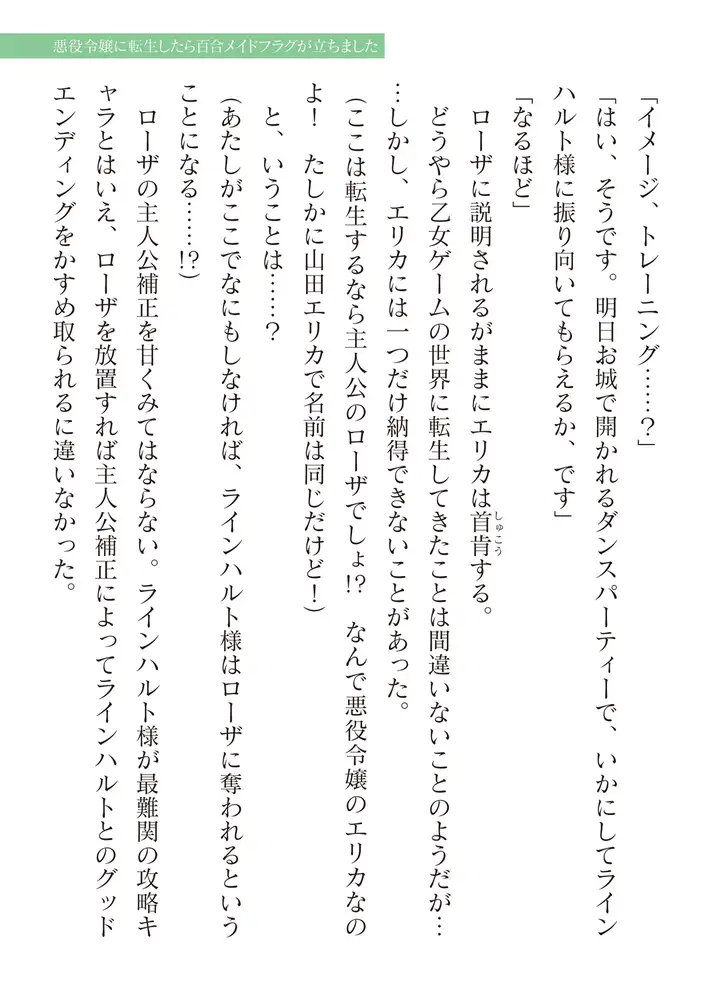 悪役令嬢に転生したら百合メイドフラグが立ちました
「イメージ、トレーニング……？」
「はい、そうです。明日お城で開かれるダンスパーティーで、いかにしてライン
ハルト様に振り向いてもらえるか、です」
「なるほど」
ローザに説明されるがままにエリカは首肯する。
しゅこう
どうやら乙女ゲームの世界に転生してきたことは間違いないことのようだが…
…しかし、エリカには一つだけ納得できないことがあった。
（ここは転生するなら主人公のローザでしょ!?　なんで悪役令嬢のエリカなの
よ！　たしかに山田エリカで名前は同じだけど！）
と、いうことは……？
（あたしがここでなにもしなければ、ラインハルト様はローザに奪われるという
ことになる……!?）
ローザの主人公補正を甘くみてはならない。ラインハルト様が最難関の攻略キ
ャラとはいえ、ローザを放置すれば主人公補正によってラインハルトとのグッド
エンディングをかすめ取られるに違いなかった。